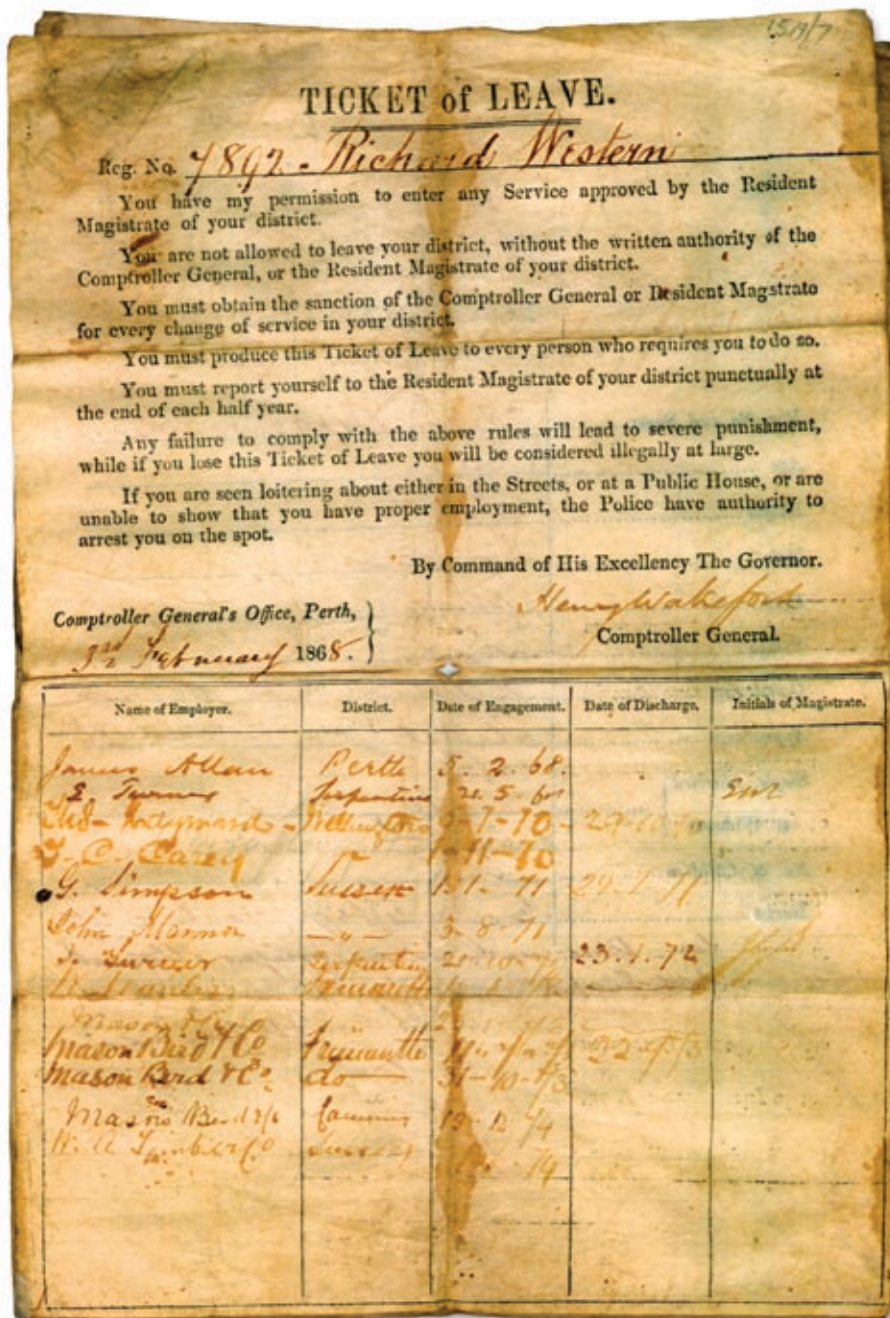 TICKET of LEAVE.
Reg. No. 7892 - Richard Western
You have my permission to enter any Service approved by the Resident
Magistrate of your district.
You are not allowed to leave your district, without the written authority of the
Comptroller General, or the Resident Magistrate of your district.
You must obtain the sanction of the Comptroller General or Resident Magstrate
for every change of service in your district.
You must produce this Ticket of Leave to every person who requires you to do so.
You must report yourself to the Resident Magistrate of your district punctually at
the end of each half year.
Any failure to comply with the above rules will lead to severe punishment,
while if you lose this Ticket of Leave you will be considered illegally at large.
If you are seen loitering about either in the Streets, or at a Public House, or are
unable to show that you have proper employment, the Police have authority to
arrest you on the spot.
By Command of His Excellency The Governor.
Henry Wakeford
Comptroller General's Office, Perth,
Comptroller General.
3rd February 1868.
Name of Employer. District. Date of Engagement. Date of Discharge. Initials of Magistrate.
James Allan Perth 5. 2. 68.
E. Turner Serpentine
Wellington
T. C. Carey 1-11-70
G. Simpson Sussex
John Mannor 3. 8. 71
Turner Serpentine 23.1.72
Fremantle
Mason & Co
Mason Bird & Co Fremantle
Mason Bird & Co. do 31-10-73
Mason Bird & Co Canning
Sussex